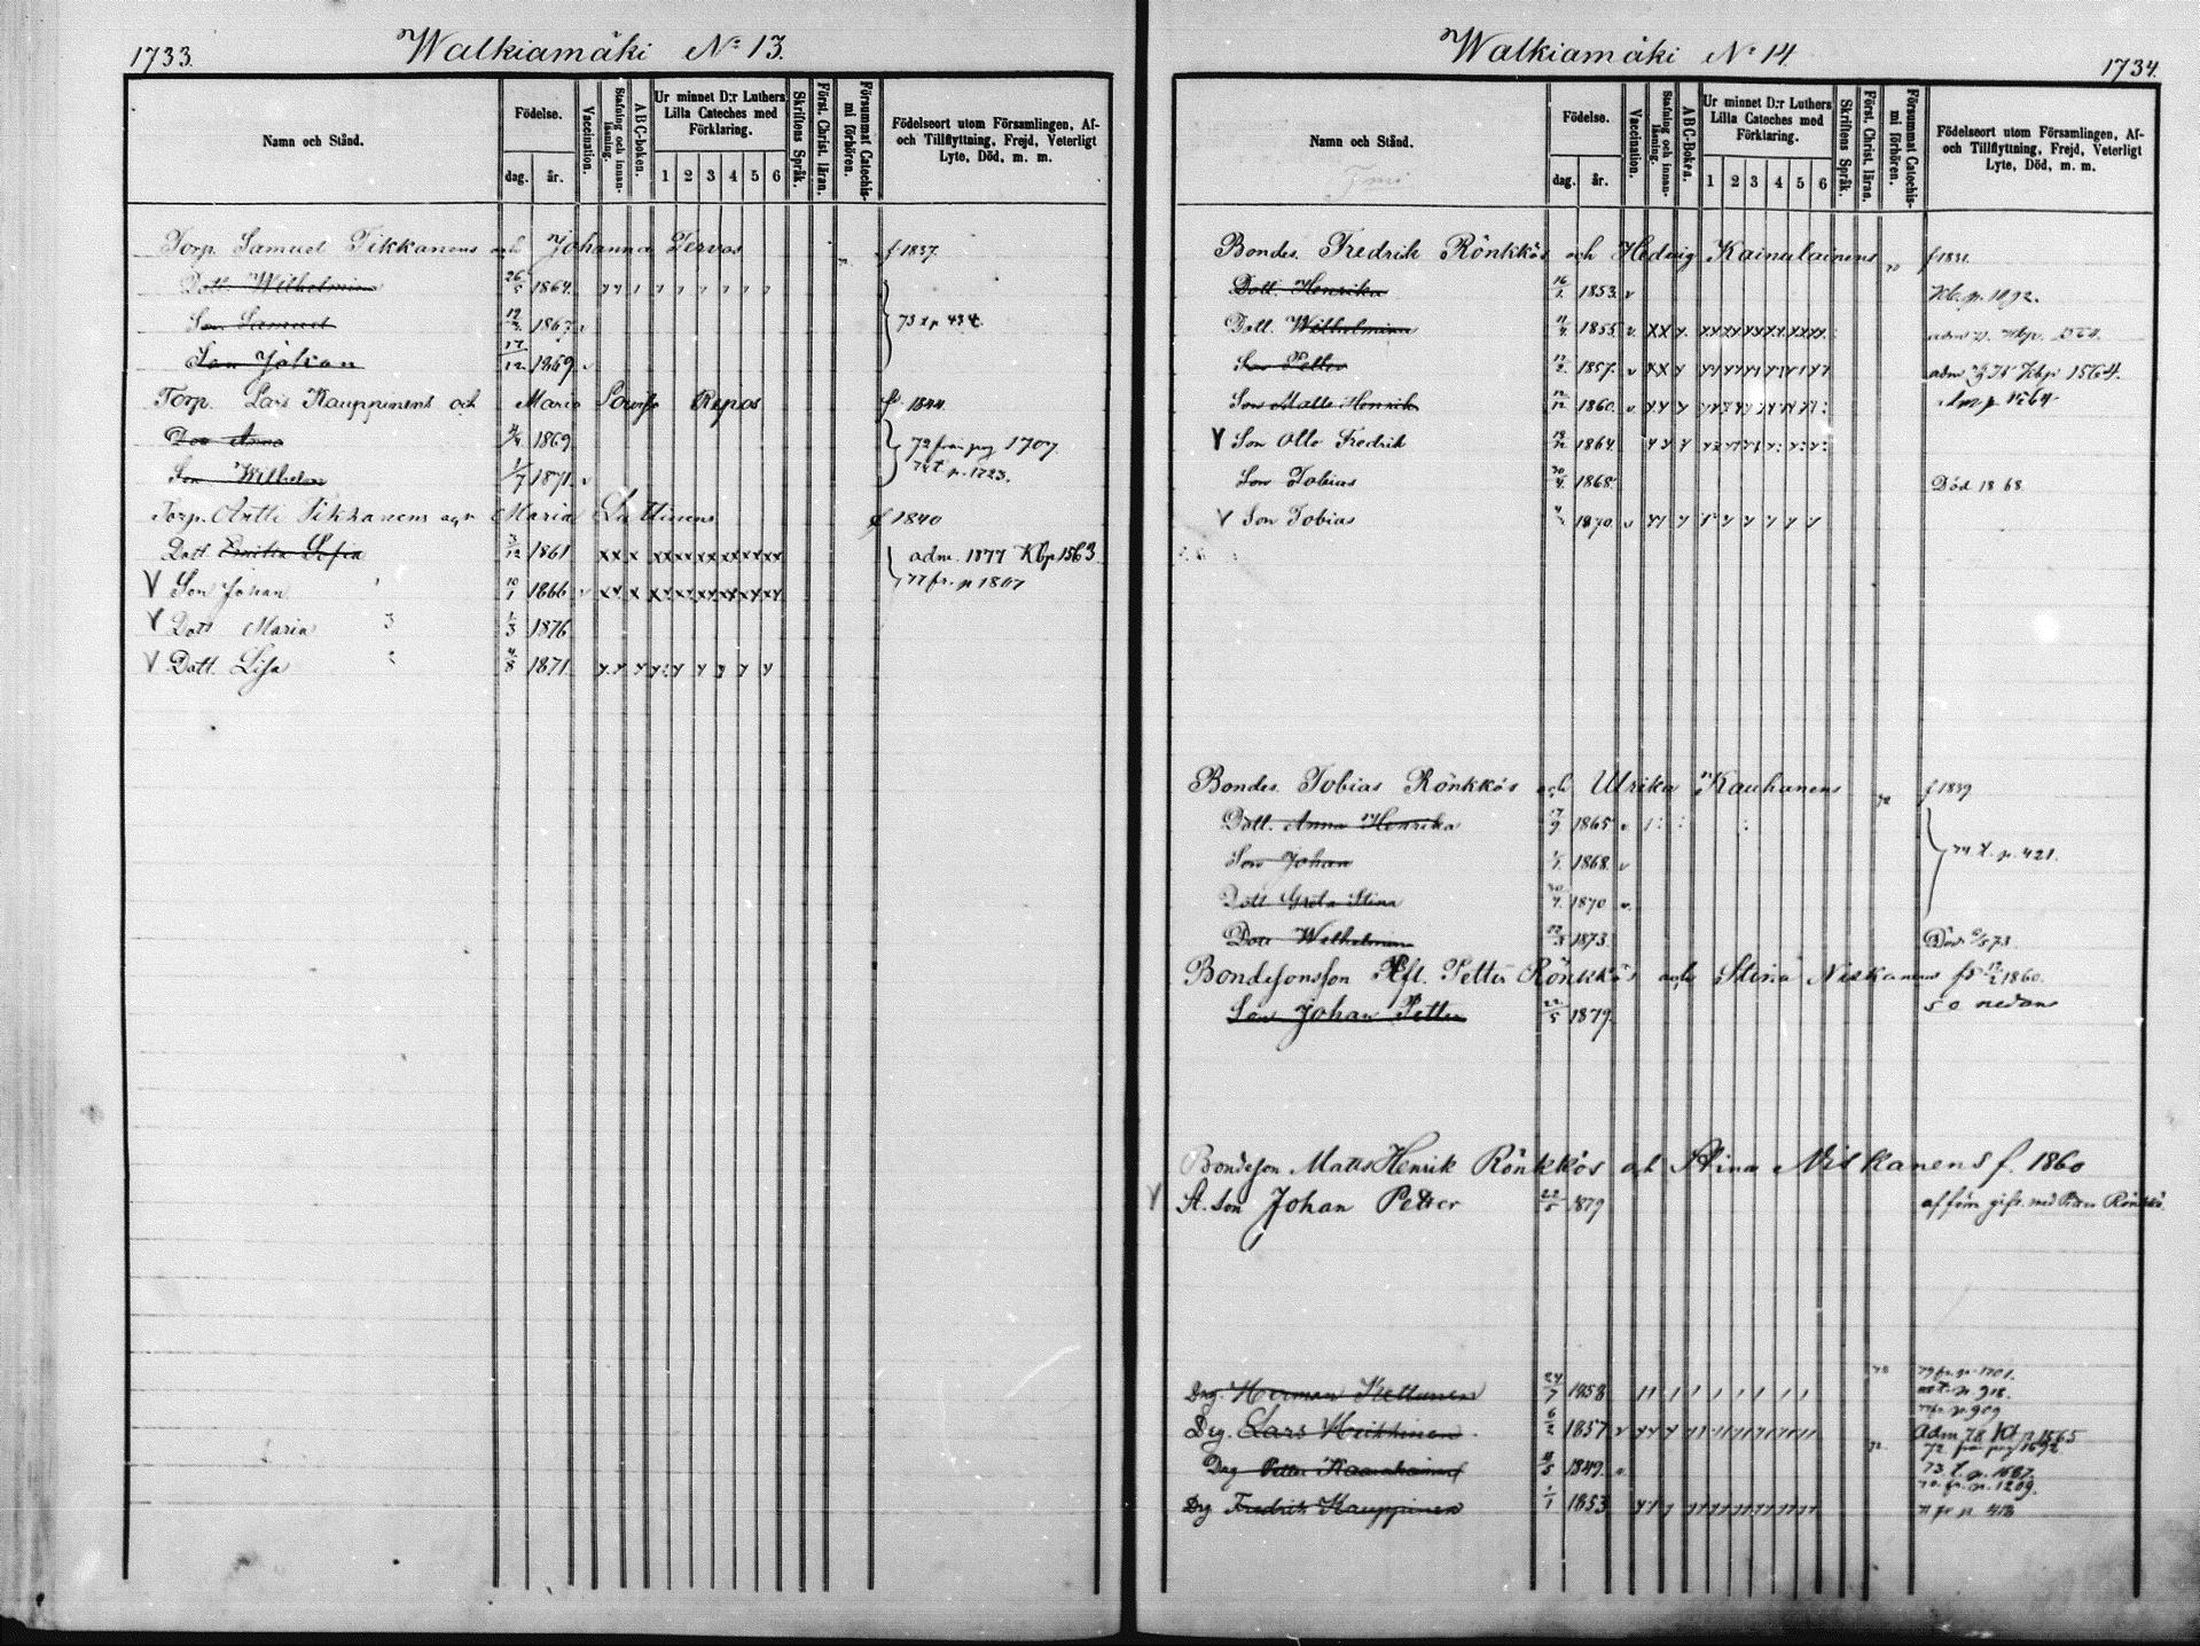 1733.
Walkiamäki No 13.
Namn och Stånd.
Födelse.
dag.
år.
Vaccination.
Stafning och innan-läsning.
ABC-boken.
Ur minnet D:r Luthers Lilla Cateches med Förklaring.
1 2 3 4 5 6
Skriftens Språk.
Först. Christ. läran.
Försummat Catechismi förhören.
Födelseort utom Församlingen, Af- och Tillflyttning, Frejd, Veterligt Lyte, Död, m. m.
Torp. Samuel Tikkanens och Johanna Tervos f 1837.
Dott. Wilhelmina 26/5 1864.
Son Samuel 1867 v 73 t p 434.
Son Johan 17/12 1869 v
Torp. Lars Kauppinens och Maria Lovisa Repos f 1844
Dot Anna 1869 72 från pag 1707
Son Wilhelm 1/7 1871 v 74 t p. 1723.
Torp. Antti Tikkanens och Maria Luttinens f 1840
Dott Britta Sofia 3/12 1861 xx x xx xx xx xx xx xx adm. 1877 Kbp 1563
V Son Johan 10/1 1866 v 77 fr. p 1807
V Dott Maria 1/3 1876
V Dott. Lisa 4/8 1871
Walkiamäki No 14.
1734.
Namn och Stånd.
Födelse.
dag.
år.
Vaccination.
Stafning och innan-läsning.
ABC-Boken.
Ur minnet D:r Luthers Lilla Cateches med Förklaring.
1 2 3 4 5 6
Skriftens Språk.
Först. Christ. läran.
Försummat Catechismi förhören.
Födelseort utom Församlingen, Af- och Tillflyttning, Frejd, Veterligt Lyte, Död, m. m.
Bondes. Fredrik Rönkkös och Hedvig Kainulainens f 1831.
Dott. Henrika 16/1 1853. v Kb. p. 1892.
Dott. Wilhelmina 1855 v
Son Petter 1857. v adm 75 Kbp 1564.
Son Matts Henrik 12/12 1860. v
V Son Otto Fredrik 1864.
Son Tobias 30/4 1868. Död 1868
V Son Tobias 1870 v
Bondes. Tobias Rönkkös och Ulrika Kauhanens f 1839
Dott. Anna Henrika 17/9 1865 v
Son Johan 1868. v 74 t. p. 421.
Dott Greta Stina 1870 v.
Dott Wilhelmina 1873. Död
Bondesonsson Petter Rönkkös och Stina Niskanens 1860.
Son Johan Petter 22/5 1879. nedan
Bondeson Matts Henrik Rönkkös och Stina Niskanens f. 1860
V St. son Johan Petter 22/5 1879 af förra gift. med Petter Rönkkö.
79 fr. p. 1701.
Drg. Herman Kettunen 24/7 1858 t. p. 918.
p. 909
Drg. Lars Heikkinen 6/2 1857 v Adm 78 Kb p 1565
72 från pag 1692
Drg Petter 1849. v 73 t. p. 1687.
fr. p. 1209.
Drg Fredrik Kauppinen 1/1 1853